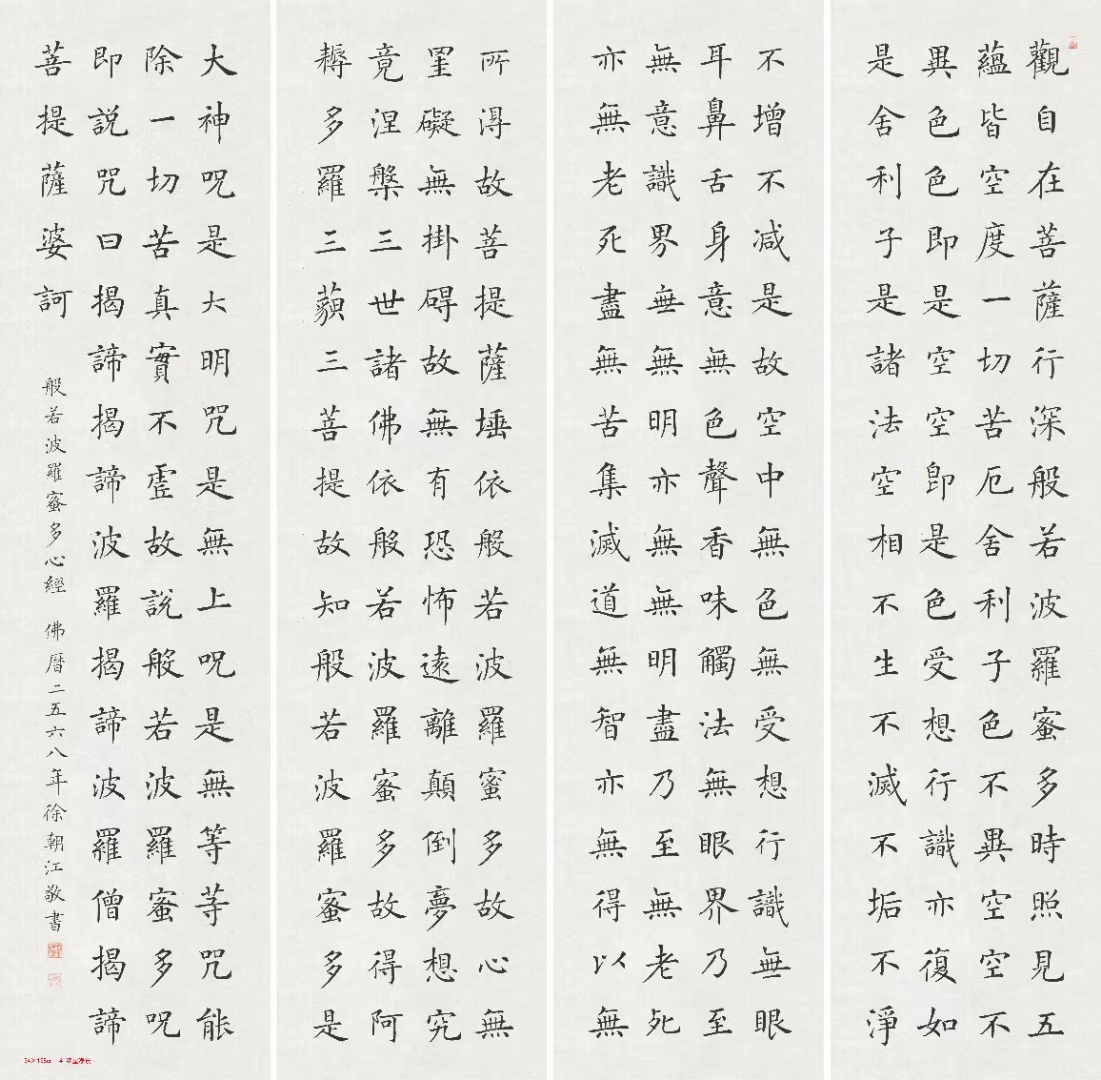 觀自在菩薩行深般若波羅蜜多時照見五
蘊皆空度一切苦厄舍利子色不異空空不
異色色即是空空即是色受想行識亦復如
是舍利子是諸法空相不生不滅不垢不淨
不增不减是故空中無色無受想行識無眼
耳鼻舌身意無色聲香味觸法無眼界乃至
無意識界無無明亦無無明盡乃至無老死
亦無老死盡無苦集滅道無智亦無得以無
所得故菩提薩埵依般若波羅蜜多故心無
罣礙無掛碍故無有恐怖遠離顛倒夢想究
竟涅槃三世諸佛依般若波羅蜜多故得阿
耨多羅三藐三菩提故知般若波羅蜜多是
大神咒是大明咒是無上咒是無等等咒能
除一切苦真實不虛故說般若波羅蜜多咒
即說咒曰揭諦揭諦波羅揭諦波羅僧揭諦
菩提薩婆訶
般若波羅蜜多心經 佛曆二五六八年徐朝江敬書